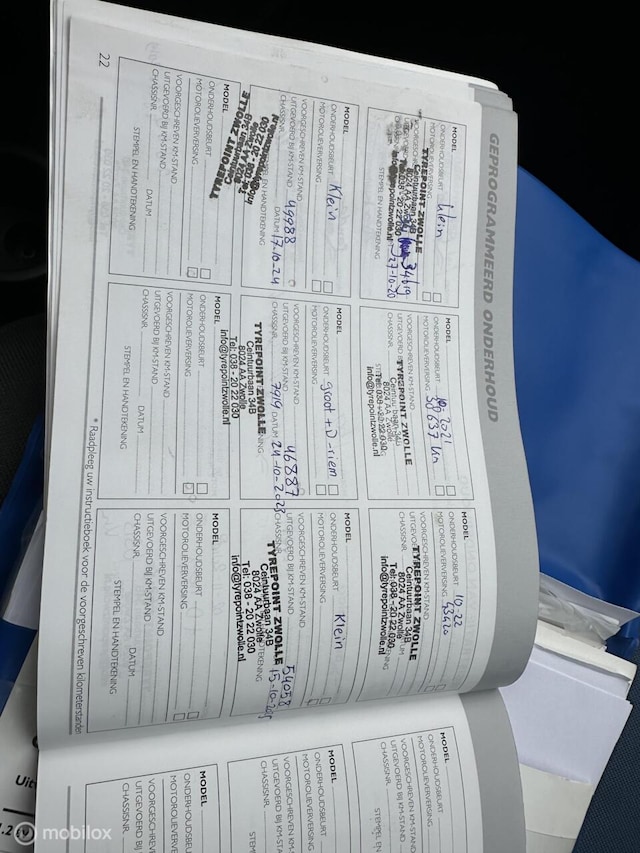 GEPROGRAMMEERD ONDERHOUD
MODEL
ONDERHOUDSBEURT Klein
MOTOROLIEVERVERSING
TYREPOINT ZWOLLE
Ceintuurbaan 34B
8024 AA Zwolle
038 - 20 22 030
info@tyrepointzwolle.nl
27-10-20
STEMPEL EN HANDTEKENING
MODEL
ONDERHOUDSBEURT 10 2021
MOTOROLIEVERVERSING
VOORGESCHREVEN KM-STAND
UITGEVOERD BIJ KM-STAND
TYREPOINT ZWOLLE
Ceintuurbaan 34B
8024 AA Zwolle
Tel: 038 - 20 22 030
info@tyrepointzwolle.nl
MODEL
ONDERHOUDSBEURT 10-22
MOTOROLIEVERVERSING 43420
VOORGESCHREVEN KM-STAND
UITGEVOERD BIJ KM-STAND
TYREPOINT ZWOLLE
Ceintuurbaan 34B
8024 AA Zwolle
Tel: 038 - 20 22 030
info@tyrepointzwolle.nl
MODEL
ONDERHOUDSBEURT Klein
MOTOROLIEVERVERSING
VOORGESCHREVEN KM-STAND
UITGEVOERD BIJ KM-STAND 49988
CHASSISNR. DATUM 17.10.24
STEMPEL EN HANDTEKENING
MODEL
ONDERHOUDSBEURT Groot + D-riem
MOTOROLIEVERVERSING
VOORGESCHREVEN KM-STAND
UITGEVOERD BIJ KM-STAND 46887
CHASSISNR. 7919 DATUM 24-10-2023
TYREPOINT ZWOLLE
Ceintuurbaan 34B
8024 AA Zwolle
Tel: 038 - 20 22 030
info@tyrepointzwolle.nl
MODEL
ONDERHOUDSBEURT Klein
MOTOROLIEVERVERSING
VOORGESCHREVEN KM-STAND
UITGEVOERD BIJ KM-STAND 54058
CHASSISNR.
TYREPOINT ZWOLLE
Ceintuurbaan 34B
8024 AA Zwolle
Tel: 038 - 20 22 030
info@tyrepointzwolle.nl
MODEL
ONDERHOUDSBEURT
MOTOROLIEVERVERSING
VOORGESCHREVEN KM-STAND
UITGEVOERD BIJ KM-STAND
CHASSISNR. DATUM
STEMPEL EN HANDTEKENING
MODEL
ONDERHOUDSBEURT
MOTOROLIEVERVERSING
VOORGESCHREVEN KM-STAND
UITGEVOERD BIJ KM-STAND
CHASSISNR. DATUM
STEMPEL EN HANDTEKENING
MODEL
ONDERHOUDSBEURT
MOTOROLIEVERVERSING
VOORGESCHREVEN KM-STAND
UITGEVOERD BIJ KM-STAND
CHASSISNR. DATUM
STEMPEL EN HANDTEKENING
22
* Raadpleeg uw instructieboek voor de voorgeschreven kilometerstanden
MODEL
ONDERHOUDSBEURT
MOTOROLIEVERVERSING
VOORGESCHREVEN KM
UITGEVOERD BIJ KM-STAND
CHASSISNR.
MODEL
ONDERHOUDSBEURT
MOTOROLIEVERVERSING
VOORGESCHREVEN KM-STAND
UITGEVOERD BIJ KM-STAND
CHASSISNR.
MODEL
ONDERHOUDSBEURT
MOTOROLIEVERVERSING
VOORGESCHREVEN KM-STAND
UITGEVOERD BIJ KM-STAND
CHASSISNR.
mobilox